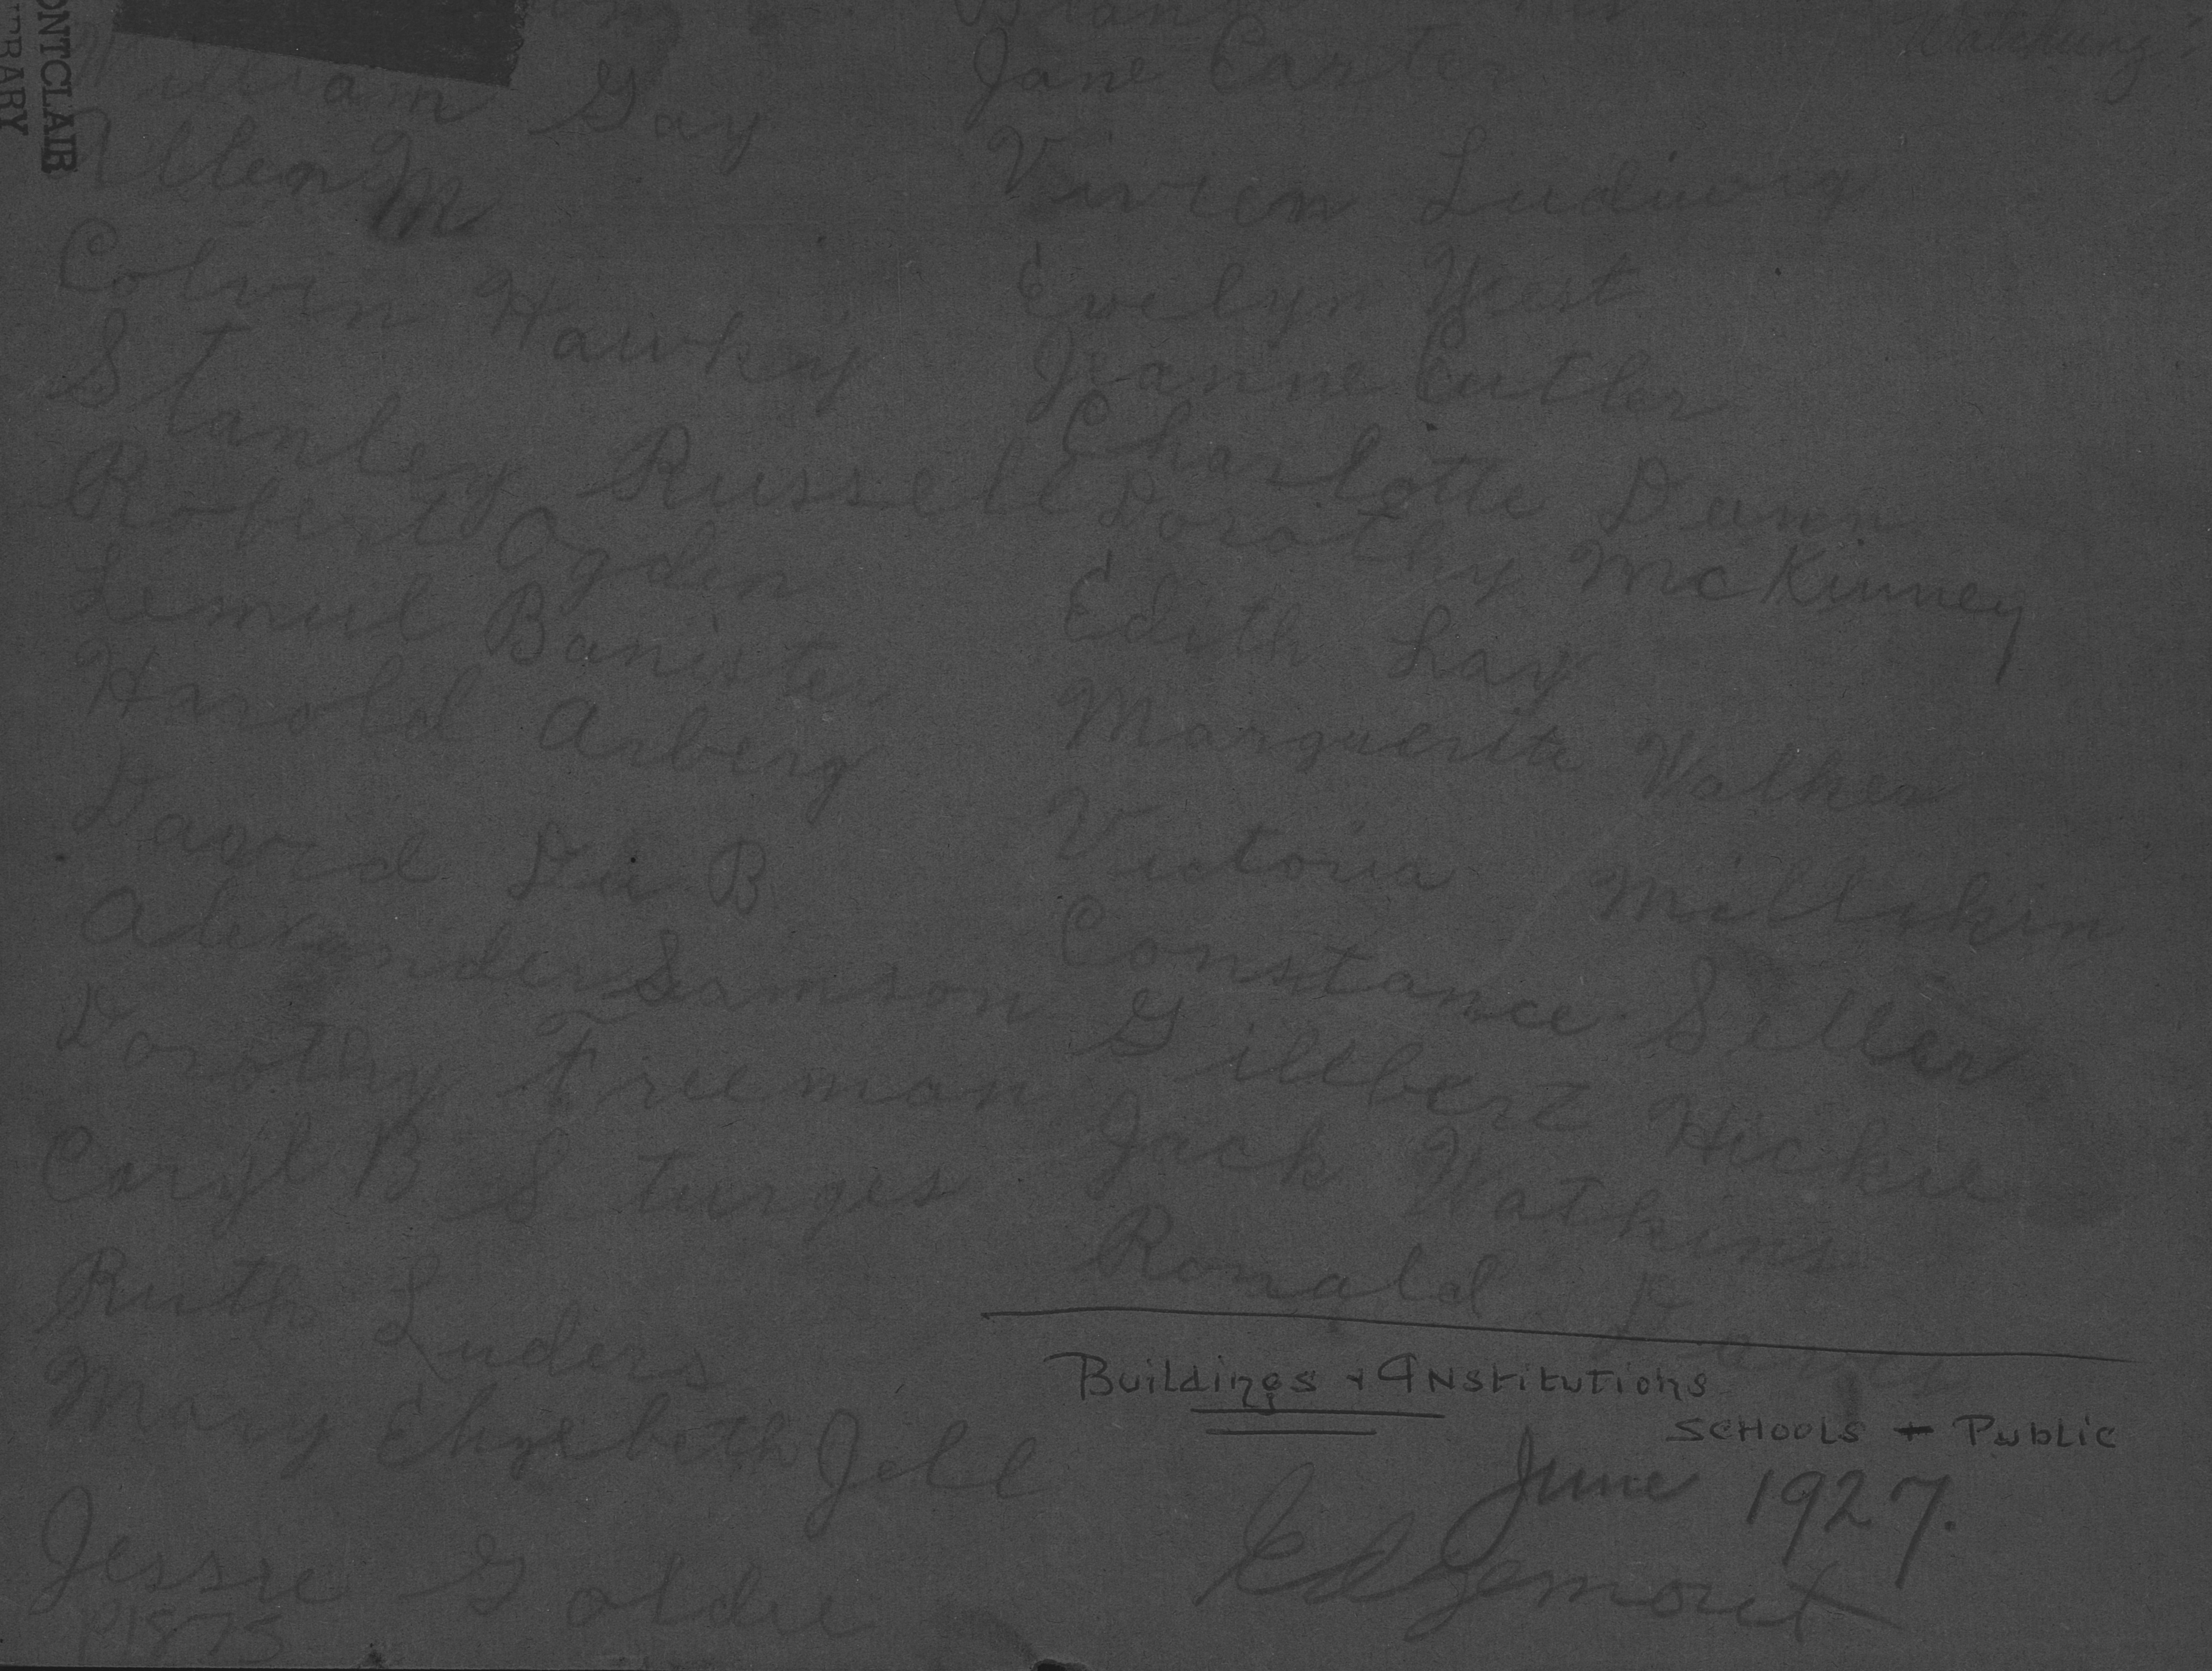 ONTCLAIR
William Gay
Allen M
Colvin Hawkey
Stanley Russell
Robert Ogden
Lemul Banister
Harold Arberg
David De B
Alexander Samson
Dorothy Freeman
Caryl B Sturges
Ruth Luders
Mary Elizabeth Jell
Jessie Goldie
P1575
Watchung
Jane Carter
Vivien Ludiwig
Evelyn West
Jeanne Cutler
Charlotte Dunn
Dorothy McKinney
Edith Lay
Marguerite Walker
Victoria Millikin
Constance Seller
Gillbert Hickie
Jack Watkins
Ronald
Buildings + Institutions
SCHOOLS - Public
June 1927.
Edgemont